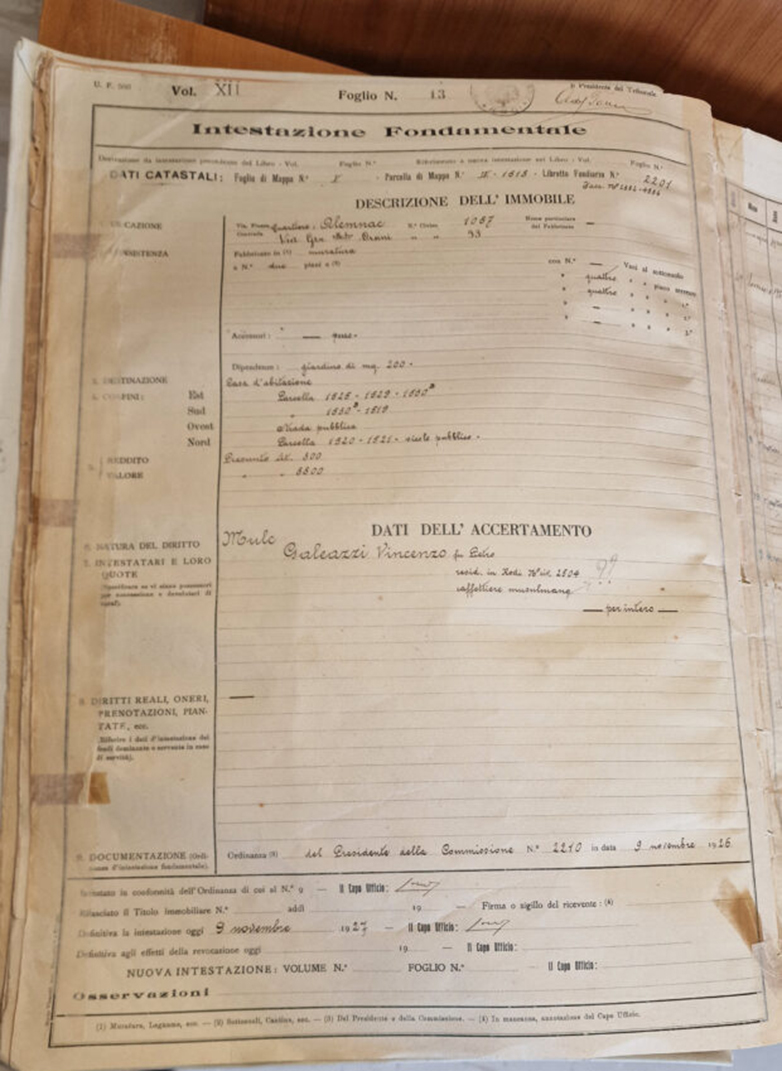 U. F. 500 Vol. XII Foglio N. 13 Il Presidente del Tribunale
Intestazione Fondamentale
Derivazione da intestazione precedente del Libro - Vol. Foglio N.° Riferimento a nuova intestazione nel Libro - Vol. Foglio N.°
DATI CATASTALI: Foglio di Mappa N.° X - Parcella di Mappa N.° IX - 1618 - Libretto Fondiario N.° 2201
DESCRIZIONE DELL' IMMOBILE
UBICAZIONE Via, Piazza Contrada quartiere: Alemnac N.° Civico 1057 Nome particolare del Fabbricato —
Via " " 93
Fabbricato in (1) muratura
a N.° due piani e (2) con N.° — Vani al sotterraneo
" quattro " " piano terreno
" quattro " " " 1.°
" — " " " 2.°
" — " " " 3.°
Accessori: " —
Dipendenze: giardino di mq. 200 -
DESTINAZIONE Casa d'abitazione
CONFINI: Est Parcella 1628 - 1629 - 1630ª
Sud " 1630ª - 1619
Ovest strada pubblica
Nord Parcella 1620 - 1621 - vicolo pubblico -
REDDITO Presunto Lit. 300
VALORE " " 5500
DATI DELL' ACCERTAMENTO
NATURA DEL DIRITTO Mulc
INTESTATARI E LORO QUOTE Galeazzi Vincenzo fu Pietro
(Specificare se vi siano possessori per concessione o devolutari di
resid. in Rodi N° id. 2504 ??
caffettiere musulmano
— per intero —
8. DIRITTI REALI, ONERI, PRENOTAZIONI, PIANTATE, ecc. —
(Riferire i dati d'intestazione dei fondi dominante o servente in caso di servitù).
9. DOCUMENTAZIONE (Ordinanza d'intestazione fondamentale). Ordinanza (3) del Presidente della Commissione N.° 2210 in data 9 novembre 1926
Intestato in conformità dell'Ordinanza di cui al N.° 9 — Il Capo Ufficio:
Rilasciato il Titolo immobiliare N.° addì 19 — Firma o sigillo del ricevente: (4)
Definitiva la intestazione oggi 9 novembre 1927 — Il Capo Ufficio:
Definitiva agli effetti della revocazione oggi 19 — Il Capo Ufficio:
NUOVA INTESTAZIONE: VOLUME N.° FOGLIO N.° Il Capo Ufficio:
Osservazioni
(1) Muratura, Legname, ecc. — (2) Sottosuoli, Cantine, ecc. — (3) Del Presidente o della Commissione. — (4) In mancanza, annotazione del Capo Ufficio.